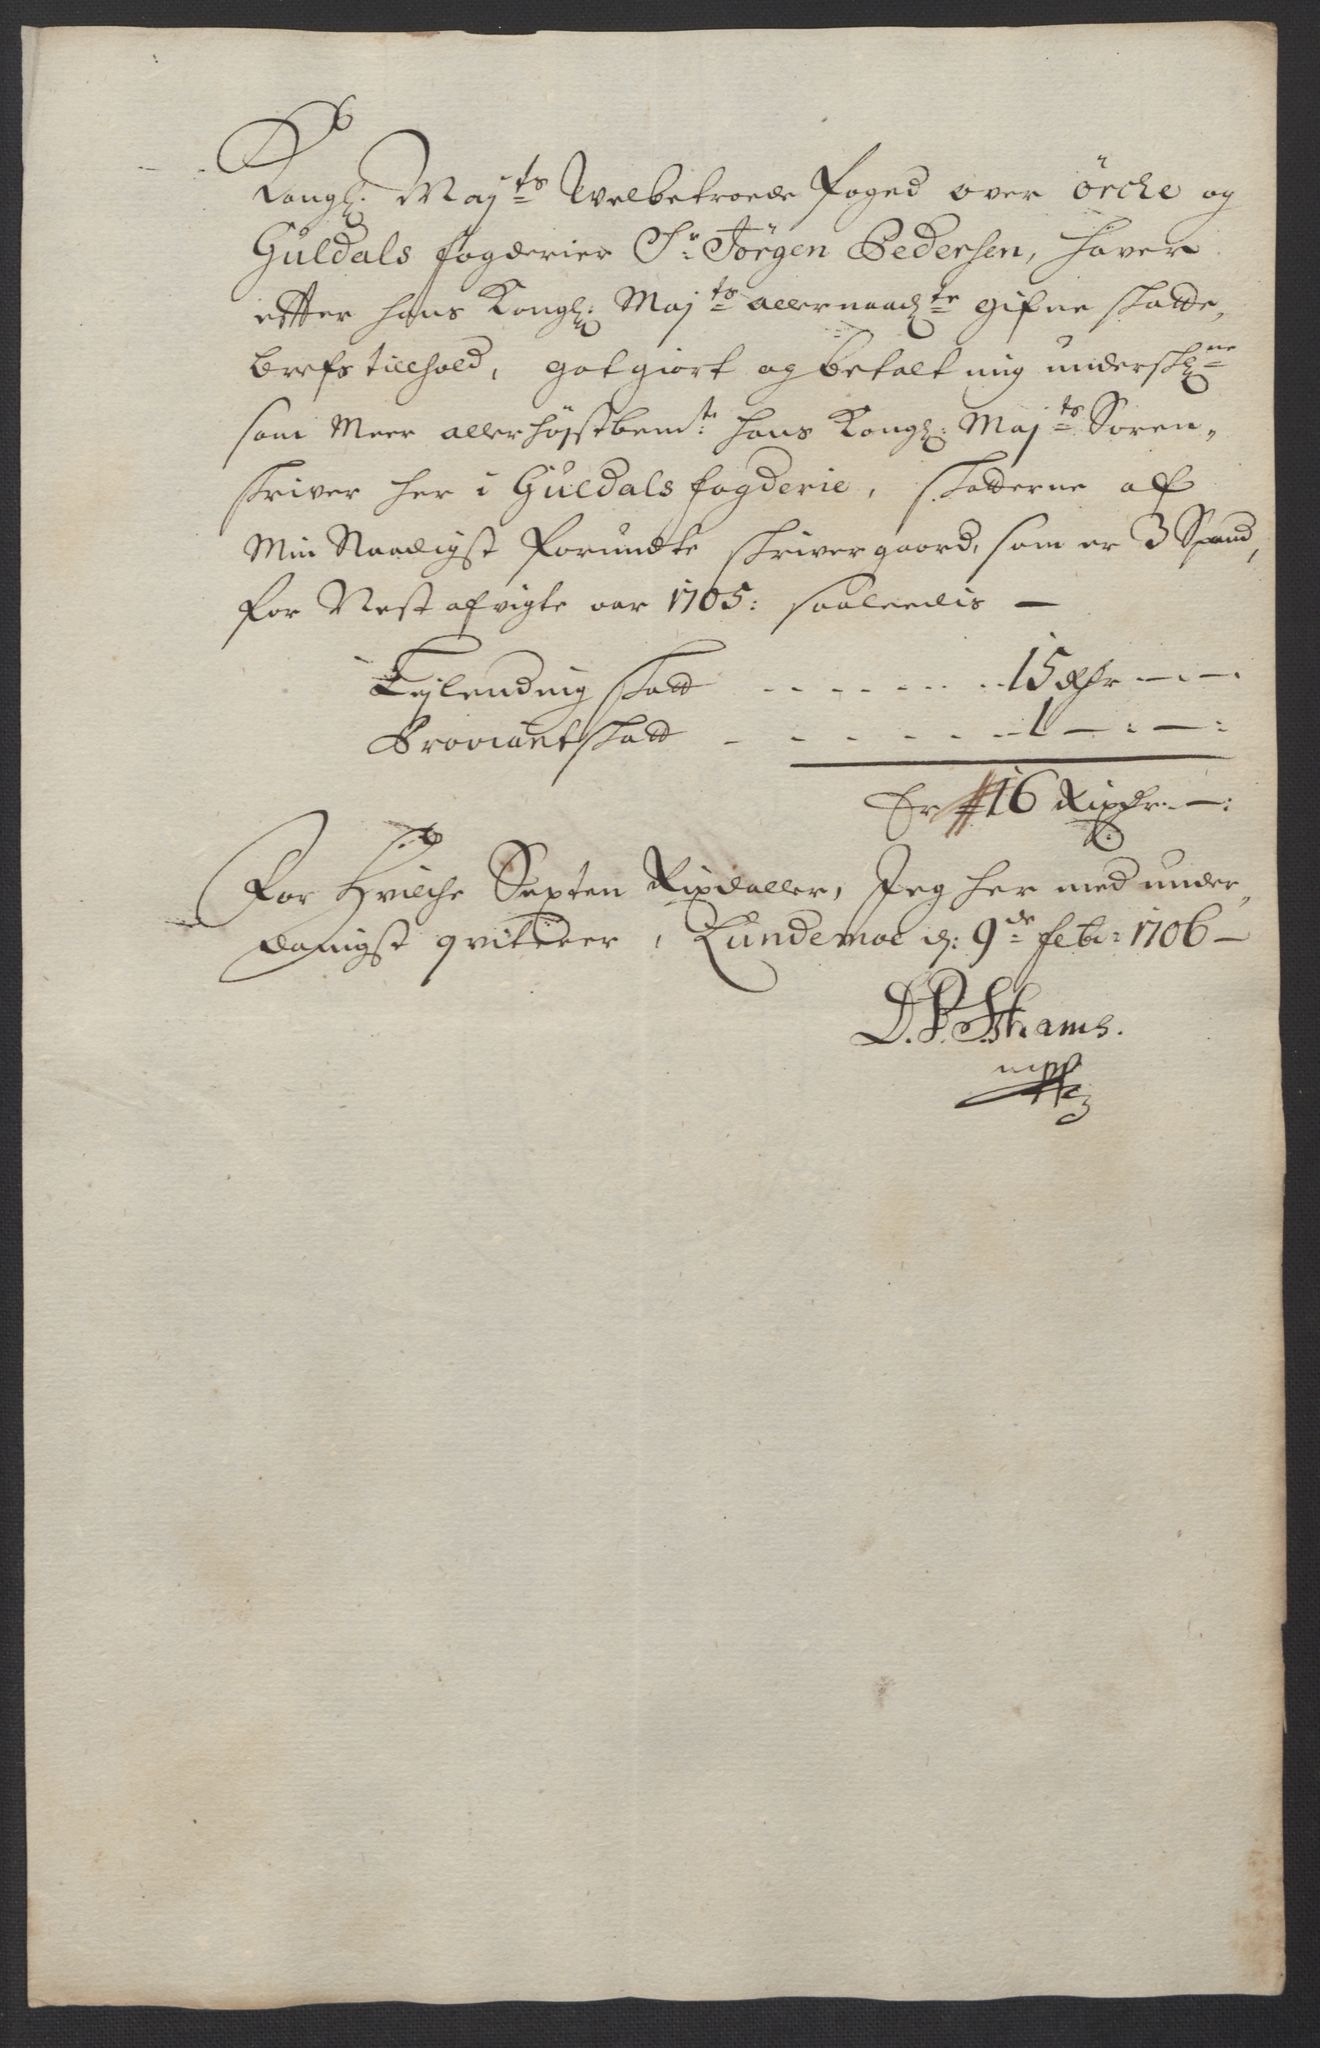 Kongl: Maj:ts Welbetroede foged over örche og
Guldals fogderier Sr: Jörgen Pedersen, haver
efter hans Kongl: Maj:ts allernaad:te gifne skatte,
brefs tillhold, gotgiort og betalt mig undersk:ne
som Meer allerhöjstbem:te hans Kongl: Maj:ts Soren,,
skriver her i Guldals fogderie, skatterne af
Min Naadigst forundte skrivergaard, som er 3 Spand,
for Nest afvigte aar 1705: saaledis —
Leylending skatt . . . . . . . 15 Rdr — . — .
Proviantskatt - . . . . . . 1 — : — :
Er 16 Rixdr. — :
For hvilche Sexten Rixdaller, Jeg her med under,
danigst qvitterer, Lundemoe d: 9de Febr: 1706 —
D. P. Schrams.
mpp